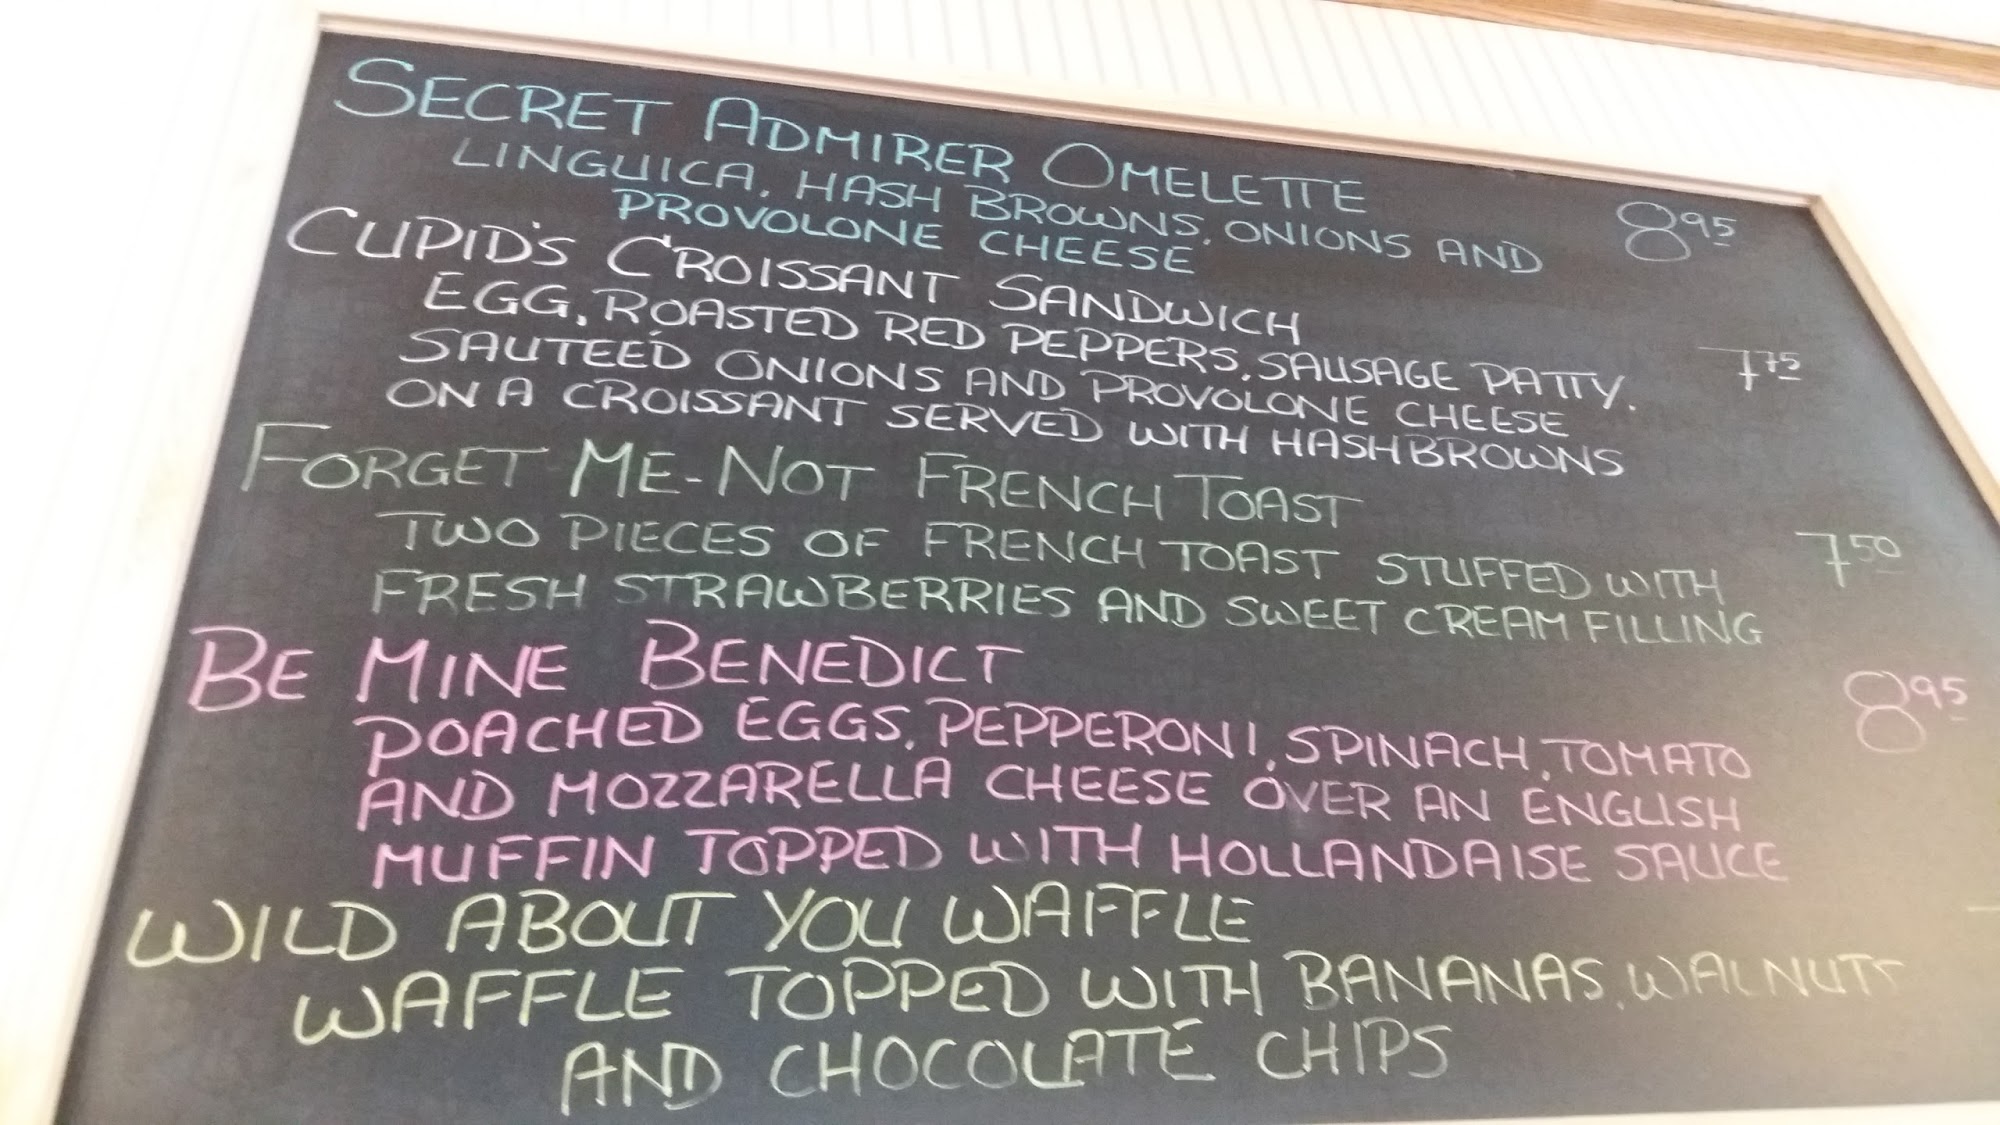 SECRET ADMIRER OMELETTE
LINGUICA, HASH BROWNS, ONIONS AND 8 95
PROVOLONE CHEESE
CUPID'S CROISSANT SANDWICH
EGG, ROASTED RED PEPPERS, SAUSAGE PATTY, 7 75
SAUTEED ONIONS AND PROVOLONE CHEESE
ON A CROISSANT SERVED WITH HASHBROWNS
FORGET ME-NOT FRENCH TOAST
TWO PIECES OF FRENCH TOAST STUFFED WITH 7 50
FRESH STRAWBERRIES AND SWEET CREAM FILLING
BE MINE BENEDICT
POACHED EGGS, PEPPERONI, SPINACH, TOMATO 8 95
AND MOZZARELLA CHEESE OVER AN ENGLISH
MUFFIN TOPPED WITH HOLLANDAISE SAUCE
WILD ABOUT YOU WAFFLE
WAFFLE TOPPED WITH BANANAS, WALNUTS
AND CHOCOLATE CHIPS